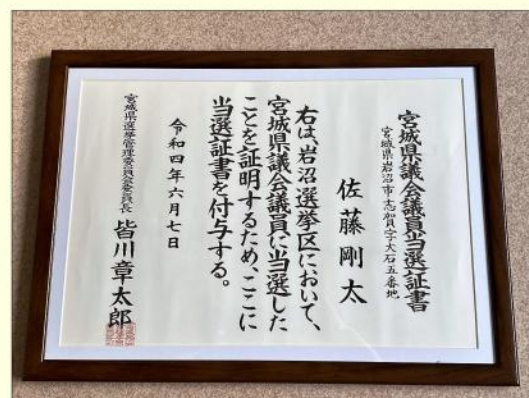 宮城県議会議員当選証書
宮城県岩沼市志賀字大石五番地
佐藤剛太
右は、岩沼選挙区において、
宮城県議会議員に当選した
ことを証明するため、ここに
当選証書を付与する。
令和四年六月七日
宮城県選挙管理委員会委員長 皆川章太郎